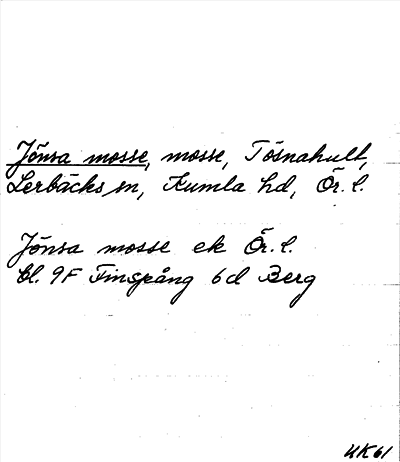 Jönsa mosse, mosse, Tösnahult,
Lerbäcks sn, Kumla hd, Ör. l.
Jönsa mosse ek Ör. l.
bl. 9F Finspång 6d Berg
UK61